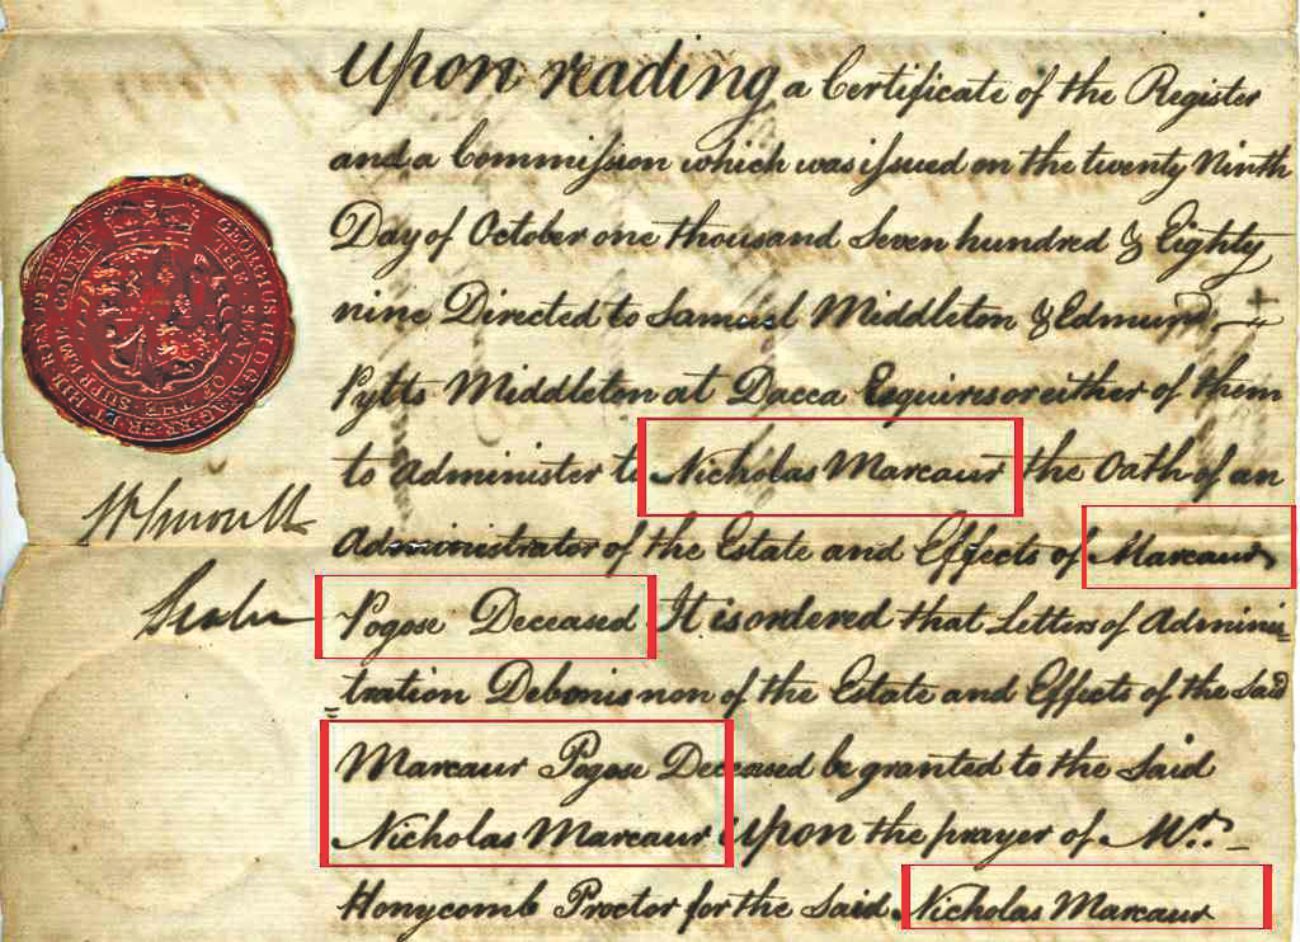 Upon reading a Certificate of the Register
and a Commission which was issued on the twenty Ninth
Day of October one thousand Seven hundred & Eighty
nine Directed to Samuel Middleton & Edmund
Pytts Middleton at Dacca Esquires or either of them
to Administer to Nicholas Marcaur the Oath of an
Administrator of the Estate and Effects of Marcaur
Pogose Deceased It is ordered that Letters of Adminis=
=tration Debonis non of the Estate and Effects of the said
Marcaur Pogose Deceased be granted to the Said
Nicholas Marcaur Upon the prayer of Mr.
Honycomb Proctor for the Said Nicholas Marcaur
GEORGIUS III D G MAG BR FR ET HIB REX
THE SEAL OF THE SUPREME COURT
Sealer